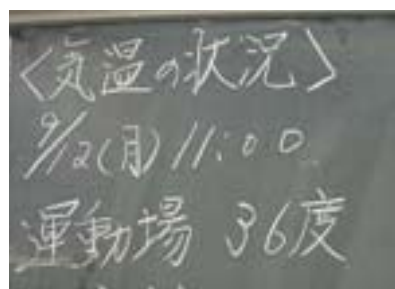 〈気温の状況〉
9/12(月) 11:00
運動場 36度